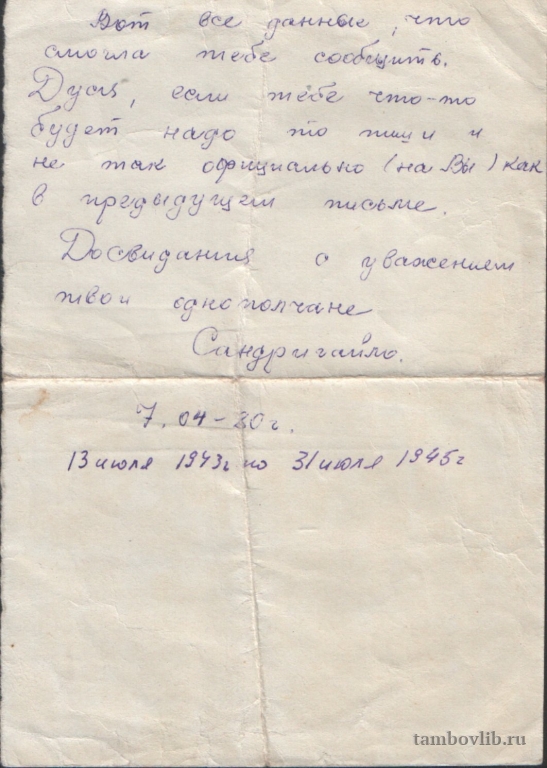 Вот все данные, что
смогла тебе сообщить.
Дуся, если тебе что-то
будет надо то пиши и
не так официально (на Вы) как
в предыдущем письме.
Досвидания с уважением
твои однополчане
Сандригайло.
7.04-80г.
13 июля 1943г по 31 июля 1945г
tambovlib.ru